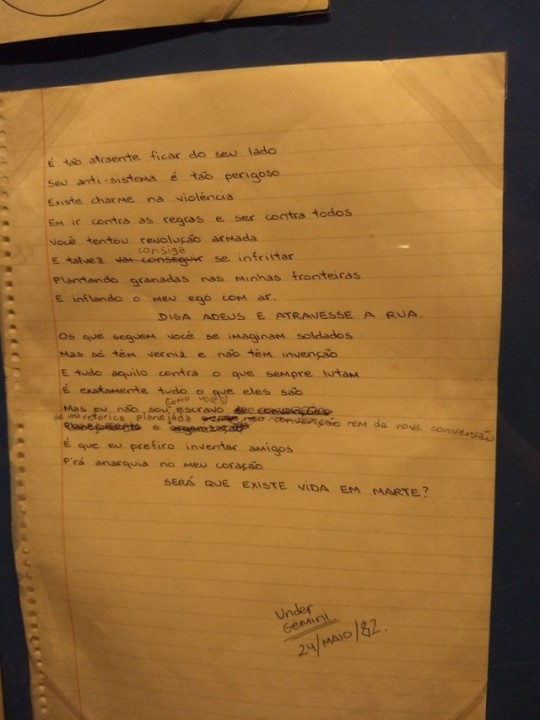 É tão atraente ficar do seu lado
Seu anti-sistema é tão perigoso
Existe charme na violência
Em ir contra as regras e ser contra todos
Você tentou revolução armada
consiga
E talvez vai conseguir se infriltar
Plantando granadas nas minhas fronteiras
E inflando o meu ego com ar.
DIGA ADEUS E ATRAVESSE A RUA.
Os que seguem você se imaginam soldados
Mas só têm verniz e não têm invenção
E tudo aquilo contra o que sempre lutam
É exatamente tudo o que eles são
como você
Mas eu não sou escravo de convenções
de uma retórica planejada nem convenção nem da nova convenção
Planejamento e organização
É que eu prefiro inventar amigos
P'rá anarquia no meu coração
SERÁ QUE EXISTE VIDA EM MARTE?
Under
Gemini
24/MAIO/82.